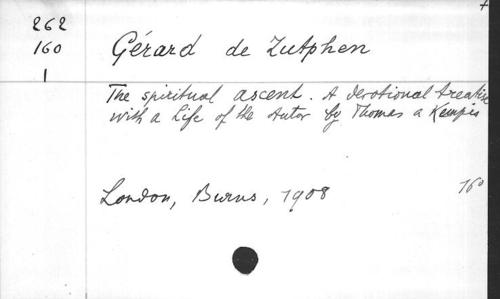 262
160
1
Gérard de Zutphen
The spiritual ascent. A devotional treatise
with a Life of the Autor by Thomas a Kempis
London, Burns, 1908
16º